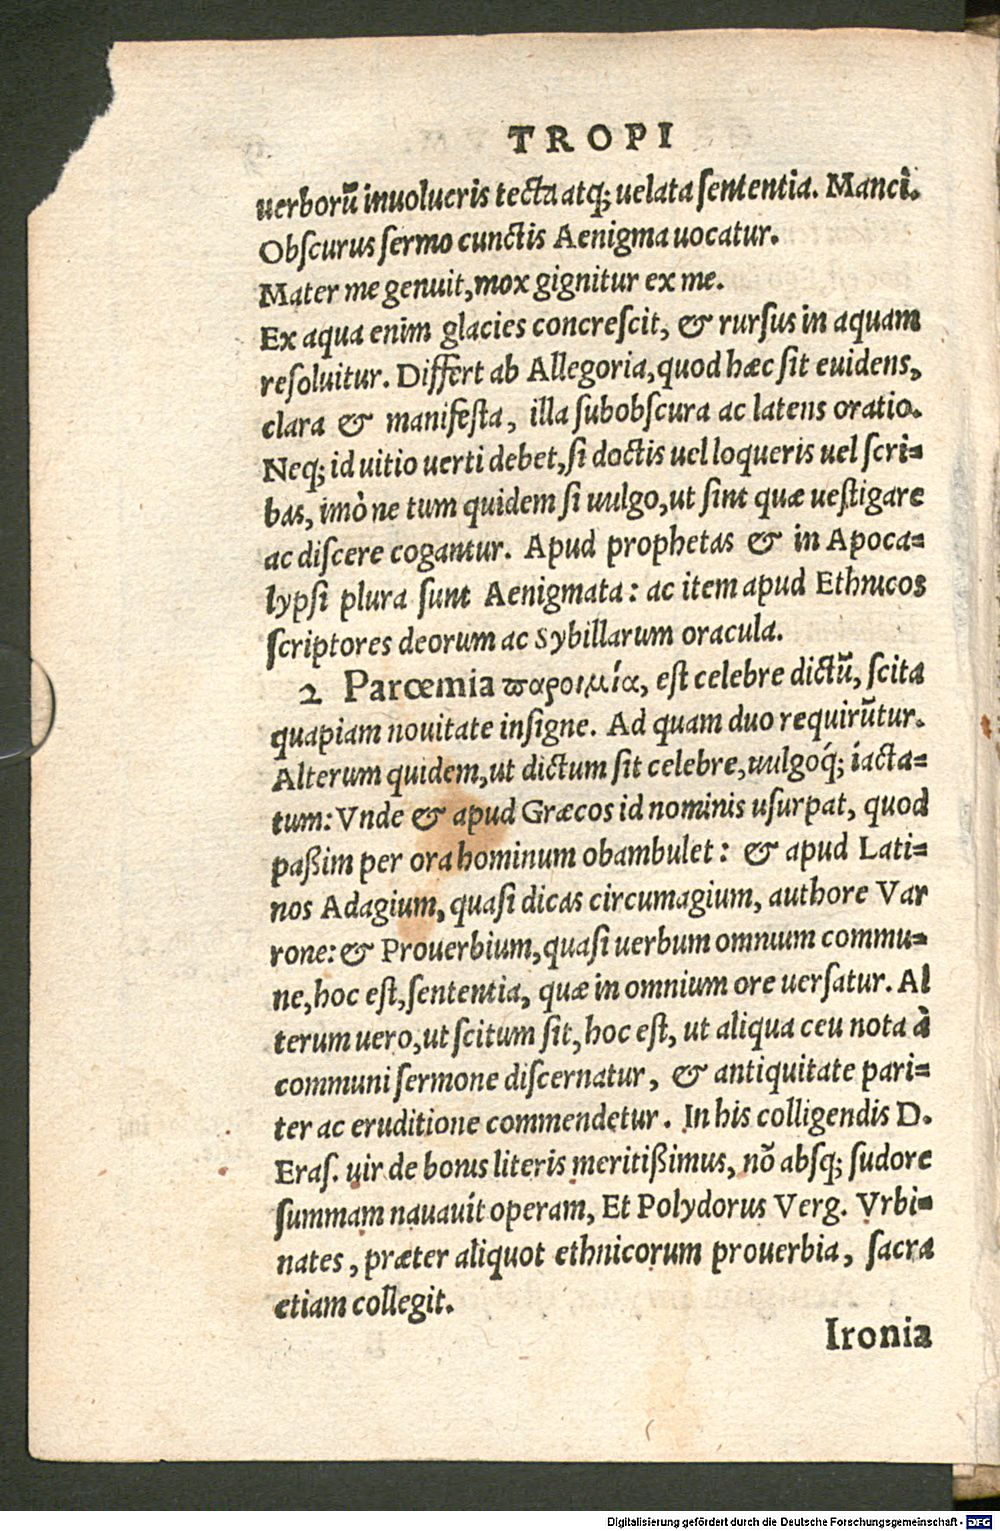 TROPI
uerborũ inuolucris tecta atq; uelata sententia. Manci.
Obscurus sermo cunctis Aenigma uocatur.
Mater me genuit, mox gignitur ex me.
Ex aqua enim glacies concrescit, & rursus in aquam
resoluitur. Differt ab Allegoria, quod hæc sit euidens,
clara & manifesta, illa subobscura ac latens oratio.
Neq; id uitio uerti debet, si doctis uel loqueris uel scri-
bas, imò ne tum quidem si uulgo, ut sint quæ uestigare
ac discere cogantur. Apud prophetas & in Apoca-
lypsi plura sunt Aenigmata: ac item apud Ethnicos
scriptores deorum ac Sybillarum oracula.
2 Parœmia παροιμία, est celebre dictũ, scita
quapiam nouitate insigne. Ad quam duo requirũtur.
Alterum quidem, ut dictum sit celebre, uulgoq́; iacta-
tum: Vnde & apud Græcos id nominis usurpat, quod
paßim per ora hominum obambulet: & apud Lati-
nos Adagium, quasi dicas circumagium, authore Var
rone: & Prouerbium, quasi uerbum omnium commu-
ne, hoc est, sententia, quæ in omnium ore uersatur. Al
terum uero, ut scitum sit, hoc est, ut aliqua ceu nota à
communi sermone discernatur, & antiquitate pari-
ter ac eruditione commendetur. In his colligendis D.
Eras. uir de bonis literis meritißimus, nõ absq; sudore
summam nauauit operam, Et Polydorus Verg. Vrbi-
nates, præter aliquot ethnicorum prouerbia, sacra
etiam collegit.
Ironia
Digitalisierung gefördert durch die Deutsche Forschungsgemeinschaft - DFG